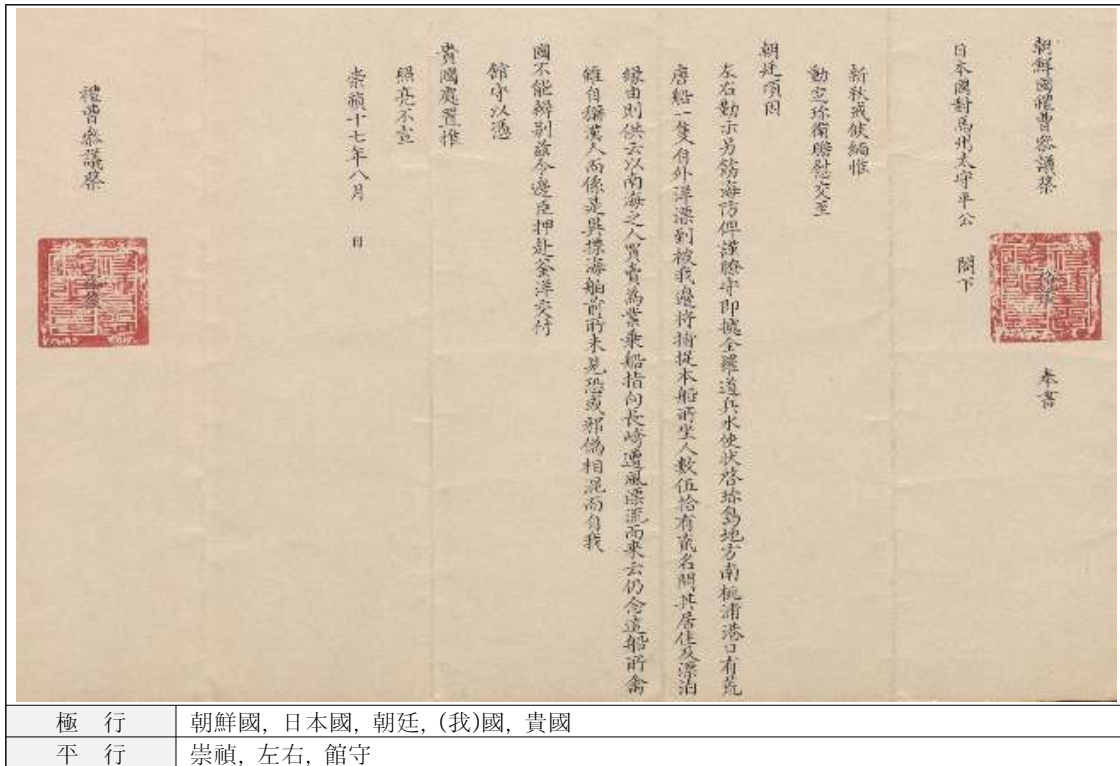 朝鮮國禮曹參議 奉書
日本國對馬州太守平公 閤下
新秋戒候緬惟
動定珍衛聯慰交至
朝廷頃因
左右勤示另飭海防俾謹瞭守卽據全羅道兵水使狀啓珍島地方南桃浦港口有荒
唐船一隻自外洋漂到被我邊將捕捉本船所坐人數伍拾有貳名問其居住及漂泊
緣由則供云以南海之人買賣爲業乘船指向長崎遭風漂流而來云仍念這船所禽
雖自稱漢人而係是異㨾海舶前所未見恐或邪僞相混而自我
國不能辨別玆令邊臣押赴釜洋交付
館守以憑
貴國處置惟
照亮不宣
崇禎十七年八月 日
禮曹參議
極 行 朝鮮國, 日本國, 朝廷, (我)國, 貴國
平 行 崇禎, 左右, 館守